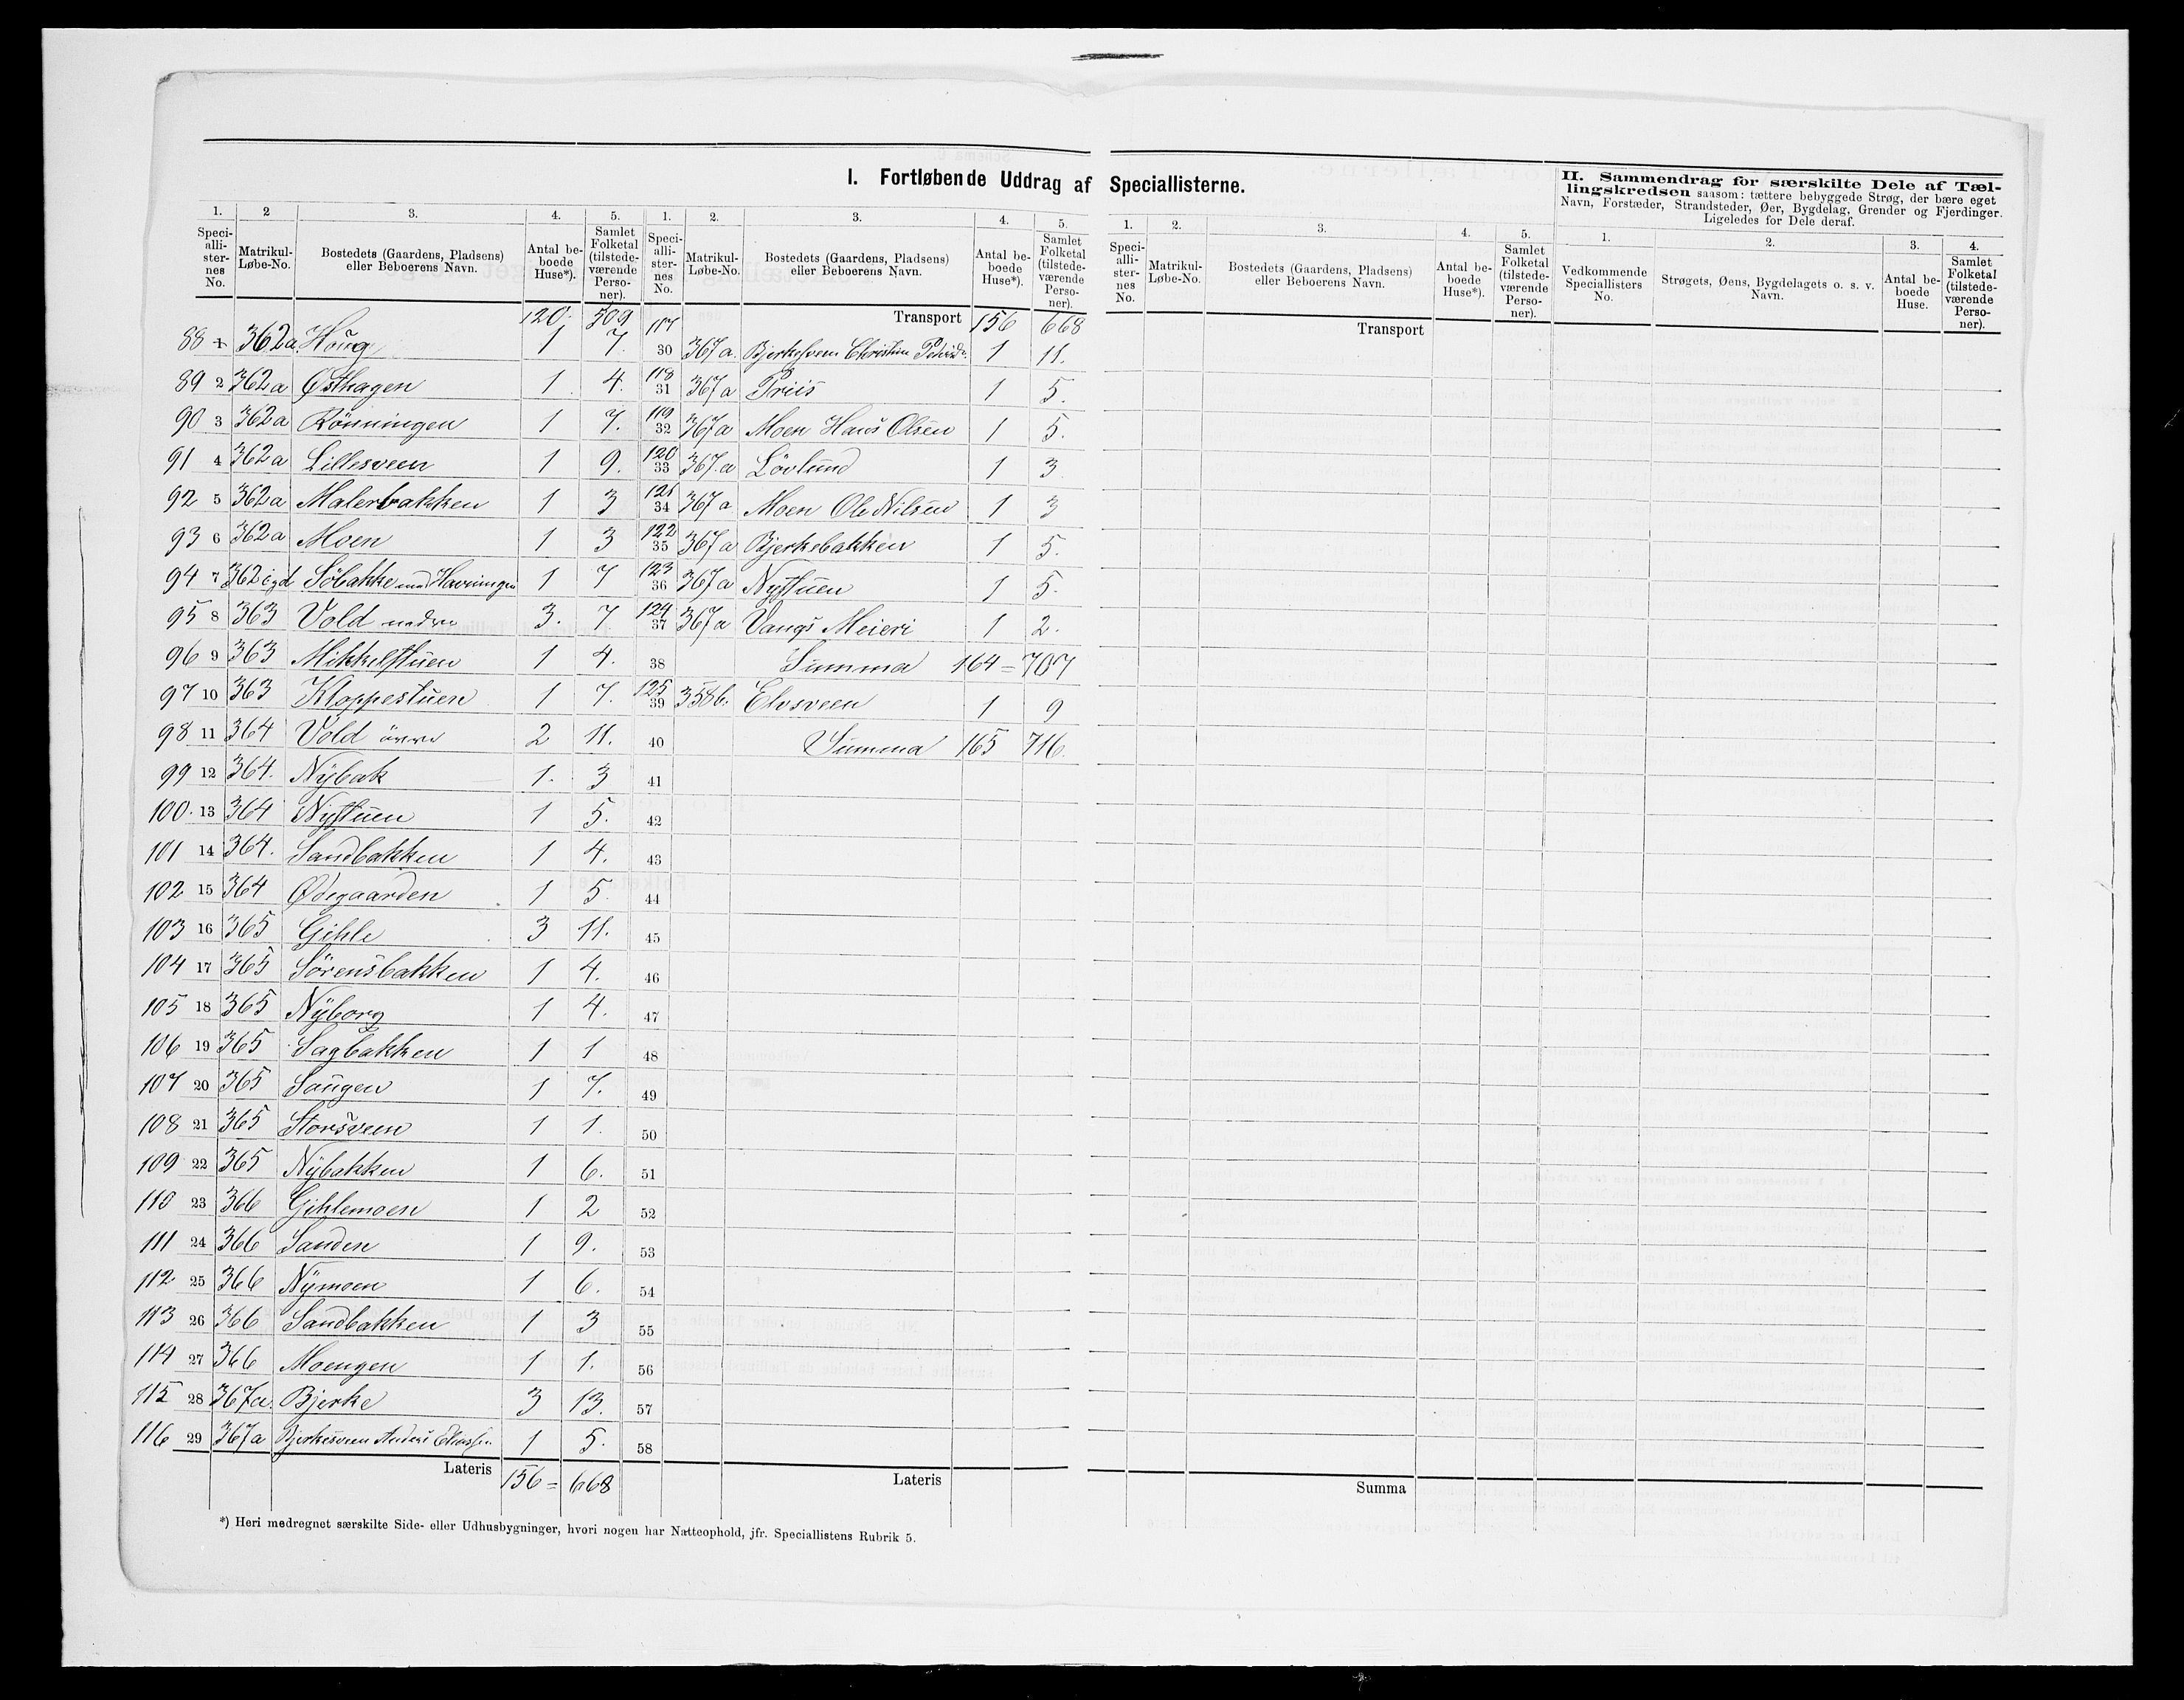 I. Fortløbende Uddrag af Speciallisterne.
1. 2 3. 4. 5.
Speciallisternes No. Matrikul-Løbe-No. Bostedets (Gaardens, Pladsens) eller Beboerens Navn. Antal beboede Huse*). Samlet Folketal (tilstedeværende Personer).
120 509
88 1 362a Houg 1 7.
89 2 362a Østhagen 1 4.
90 3 362a Rönningen 1 7.
91 4 362a Lillesveen 1 9.
92 5 362a Malerbakken 1 3
93 6 362a Moen 1 3
94 7 362 Söbakke 1 7
95 8 363 Vold nedre 3. 7
96 9 363 Mikkelstuen 1 4.
97 10 363 Kloppestuen 1 7.
98 11 364 Vold övre 2 11.
99 12 364. Nybak 1. 3
100. 13 364 Nystuen 1 5.
101 14 364. Sandbakken 1 4.
102 15 364 Ødegaarden 1 5.
103 16 365 Gihle 3 11.
104 17 365 Sörensbakken 1 4.
105 18 365 Nyborg 1 4.
106 19 365 Sagbakken 1 1
107 20 365 Saugen 1 7.
108 21 365 Storsveen 1 1.
109 22 365 Nybakken 1 6.
110 23 366 Gihlemoen 1 2
111 24 366 Sanden 1 9.
112 25 366 Nymoen 1 6.
113 26 366 Sandbakken 1 3
114 27 366 Moengen 1 1.
115 28 367a. Bjerke 3 13.
116 29 367a Bjerkesveen Anders Eliassen 1 5.
Lateris 156 = 668
1. 2. 3. 4. 5.
Speciallisternes No. Matrikul-Løbe-No. Bostedets (Gaardens, Pladsens) eller Beboerens Navn. Antal beboede Huse*). Samlet Folketal (tilstedeværende Personer).
Transport 156 668
117 30 367a. Bjerkesveen Christian 1 11.
118 31 367a Priis 1 5.
119 32 367a Moen Hans Olsen 1 5.
120 33 367.a Lövlund 1 3
121 34 367a Moen Ole Nilsen 1 3
122 35 367a Bjerkebakken 1 5.
123 36 367a Nystuen 1 5.
124 37 367a Vangs Meieri 1 2.
38 Summa 164 = 707
125 39 358b. Elvsveen 1 9
40 Summa 165 716.
41
42
43
44
45
46
47
48
49
50
51
52
53
54
55
56
57
58
Lateris
1. 2. 3. 4. 5.
Speciallisternes No. Matrikul-Løbe-No. Bostedets (Gaardens, Pladsens) eller Beboerens Navn. Antal beboede Huse*). Samlet Folketal (tilstedeværende Personer).
Transport
Summa
II. Sammendrag for særskilte Dele af Tællingskredsen saasom: tættere bebyggede Strøg, der bære eget
Navn, Forstæder, Strandsteder, Øer, Bygdelag, Grender og Fjerdinger.
Ligeledes for Dele deraf.
1. 2. 3. 4.
Vedkommende Speciallisters No. Strøgets, Øens, Bygdelagets o. s. v. Navn. Antal beboede Huse. Samlet Folketal (tilstedeværende Personer).
*) Heri medregnet særskilte Side- eller Udhusbygninger, hvori nogen har Natteophold, jfr. Speciallistens Rubrik 5.